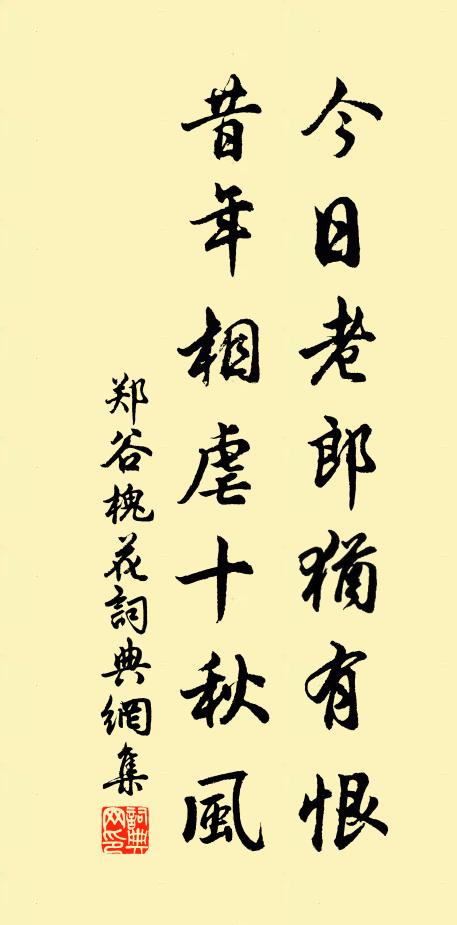 今日老郎猶有恨
昔年相虐十秋風
郑谷槐花詞典網集
詞典网印